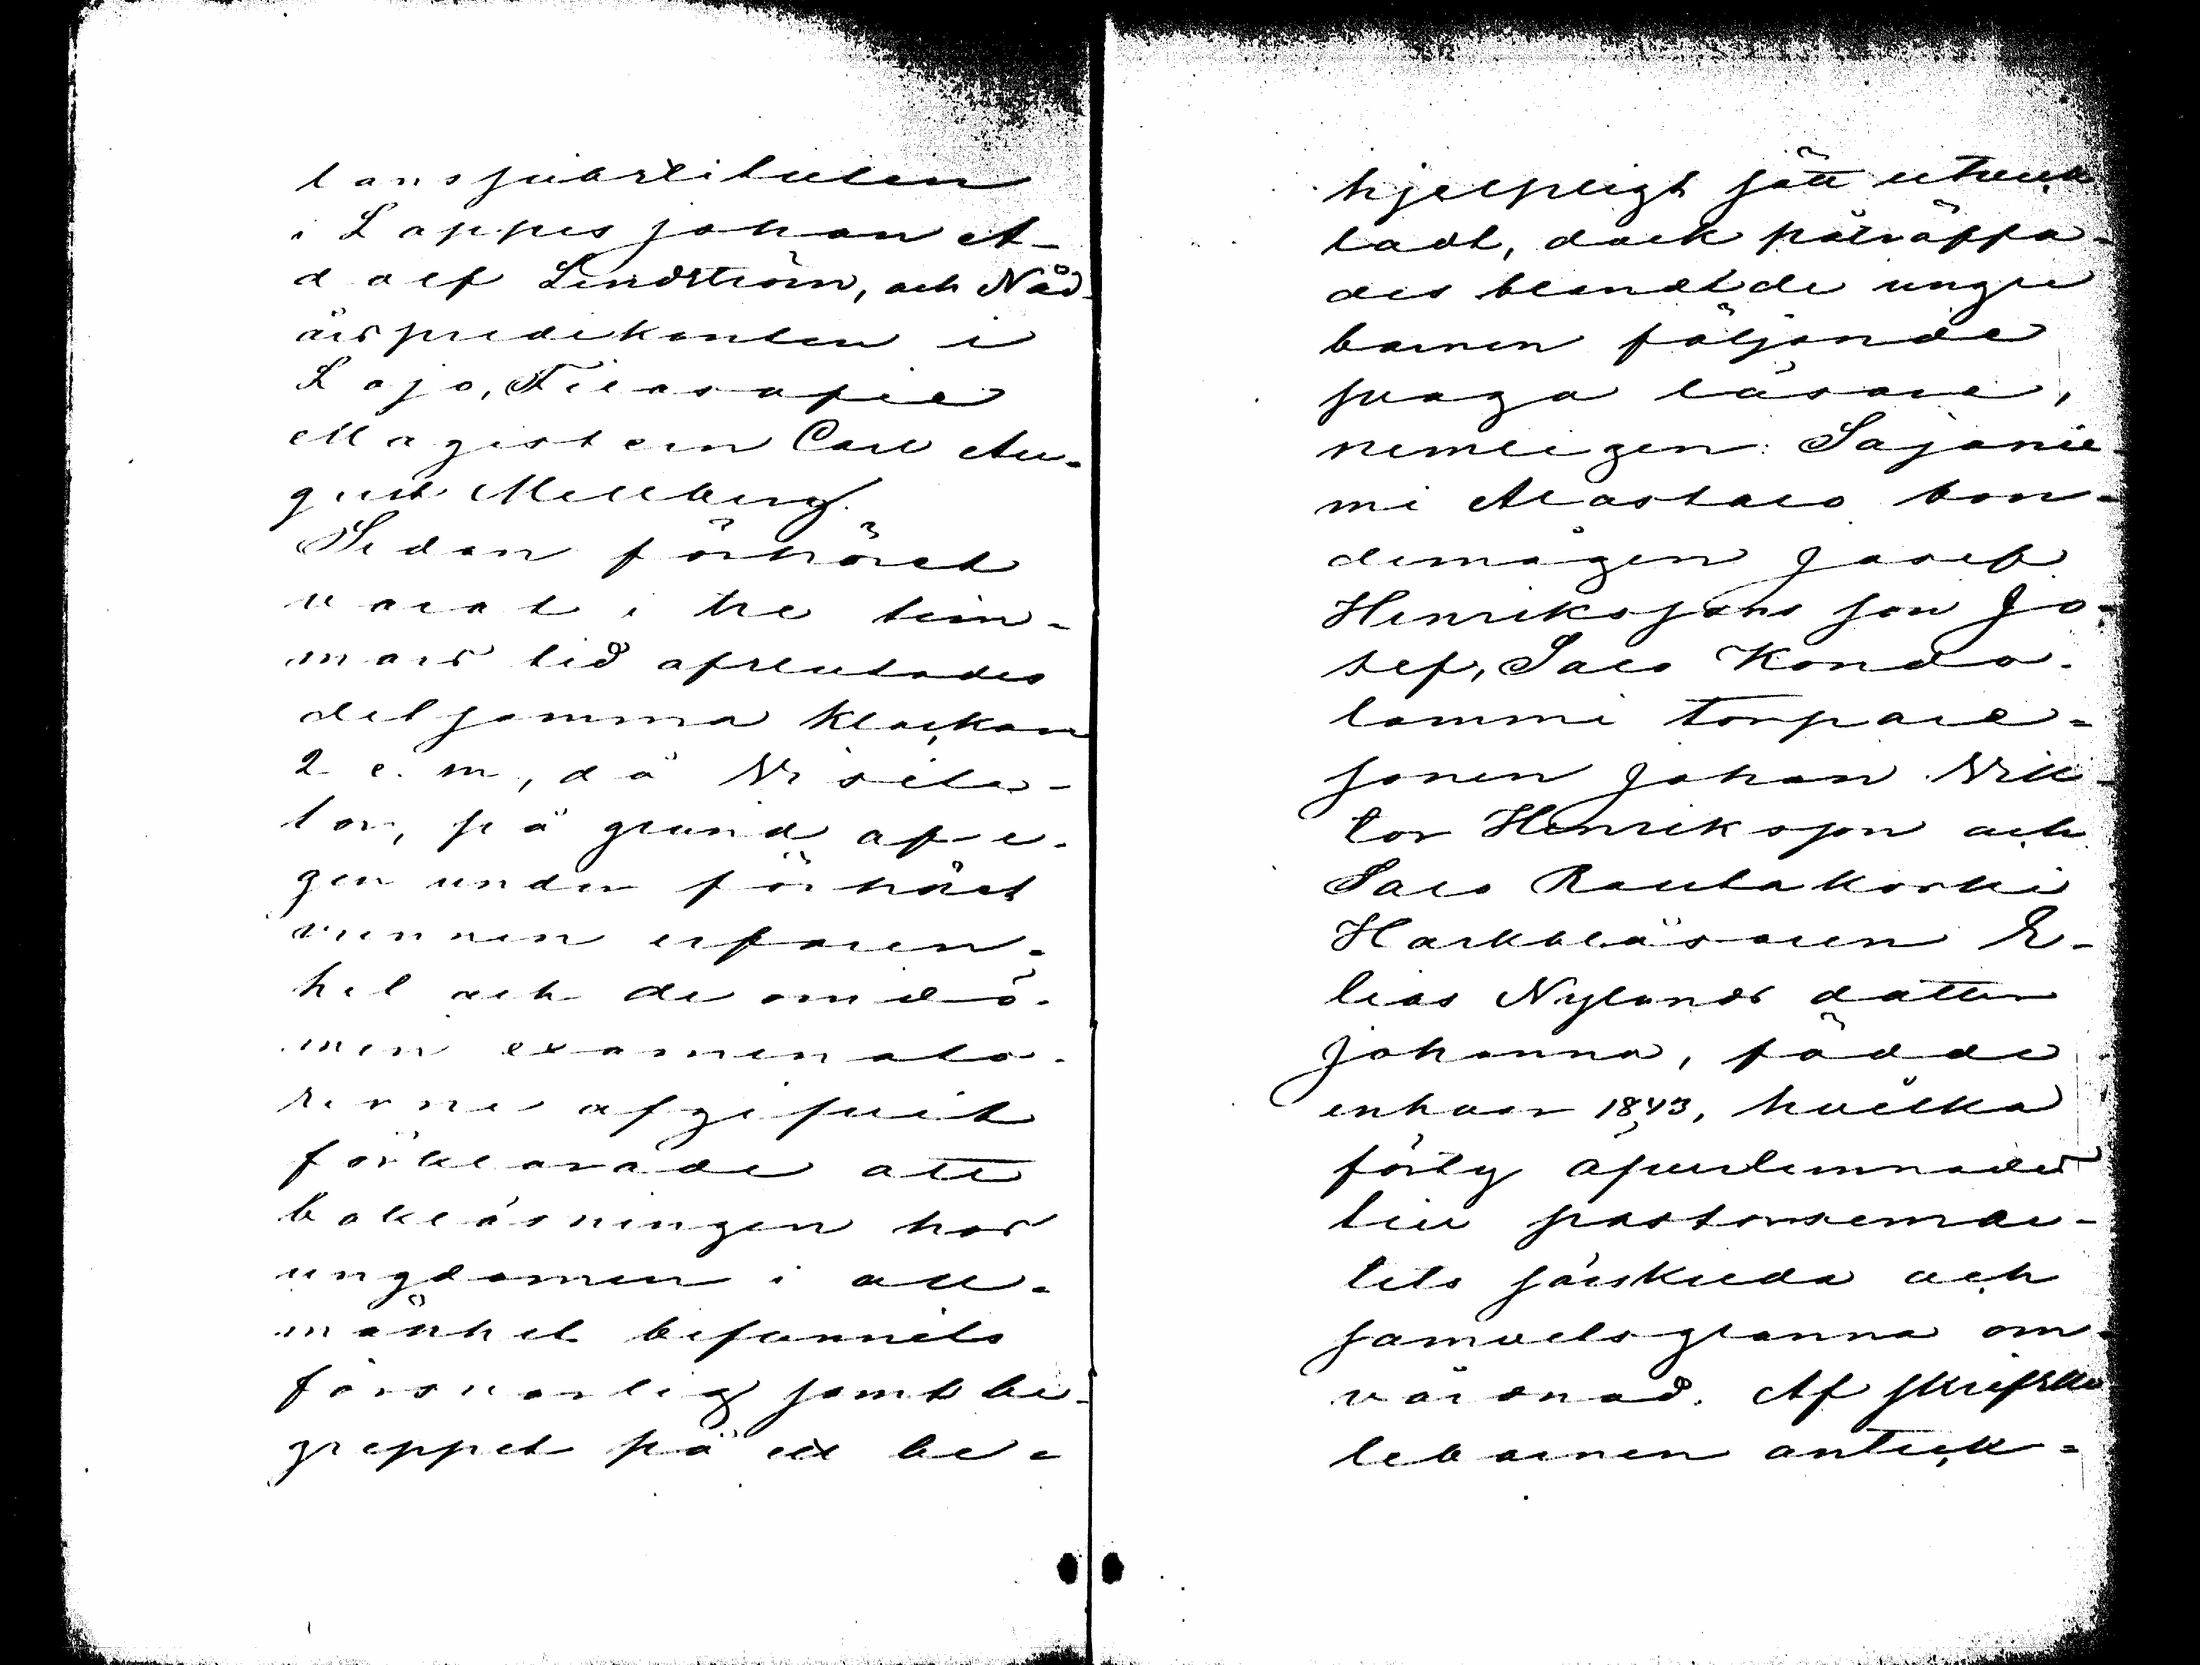 tanssubstituten
i Lappis Johan A-
dolf Lindström, och Nåd-
årspredikanten i
Lojo, Filosofie
Magistern Carl Au-
gust Mellberg.
Sedan förhöret
varat i tre tim-
mars tid afslutades
detsamma klockan
2 e. m, då Visita-
tor, på grund af e-
gen under förhöret
vunnen erfaren-
het och de omdö-
men examinato-
rerne afgifvit
förklarade att
bokläsningen hos
ungdomen i all-
mänhet befunnits
försvarlig samt be-
greppet på ett be-
hjelpligt sätt utveck
ladt, dock påträffa-
des blandt de yngre
barnen följande
svaga läsare,
nemligen: Sajanie-
mi Alastalo bon-
demågen Josef
Henrikssons son Jo-
sef, Salo Konda-
lammi torpare-
sonen Johan Vik-
tor Henriksson och
Salo Rautakoski
Harkblåsaren E-
lias Nylunds dotter
Johanna, födde
enhvar 1843, hvilka
förty öfverlemnades
till pastorsemb-
tets särskilda och
samvetsgranna om-
vårdnad. Af skriftsko
lebarnen anteck-